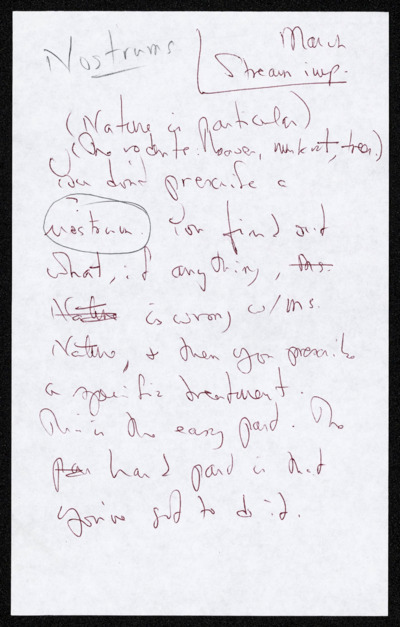 Nostrums
March
Stream imp.
(Nature is particular)
(The rodents. Beaver, muskrat, trees.)
You don't prescribe a
nostrum. You find out
what, if anything, ms.
Nature is wrong w/ ms.
Nature, & then you prescribe
a specific treatment.
This is the easy part. The
hard part is that
you've got to do it.